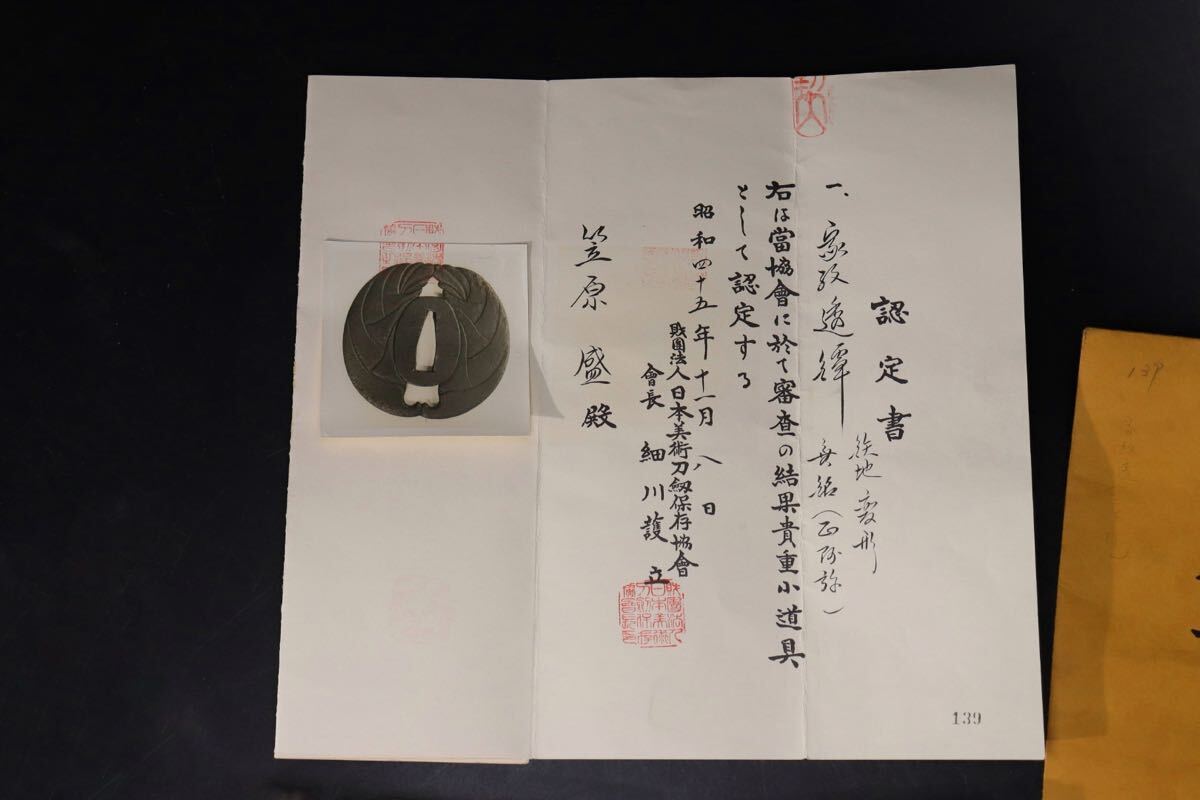 認定書
一、家紋透鐔
鉄地変形
無銘(正阿弥)
右は當協會に於て審査の結果貴重小道具
として認定する
昭和四十五年十一月八日
財團法人日本美術刀劔保存協會
會長 細川護立
笠原盛殿
139
139